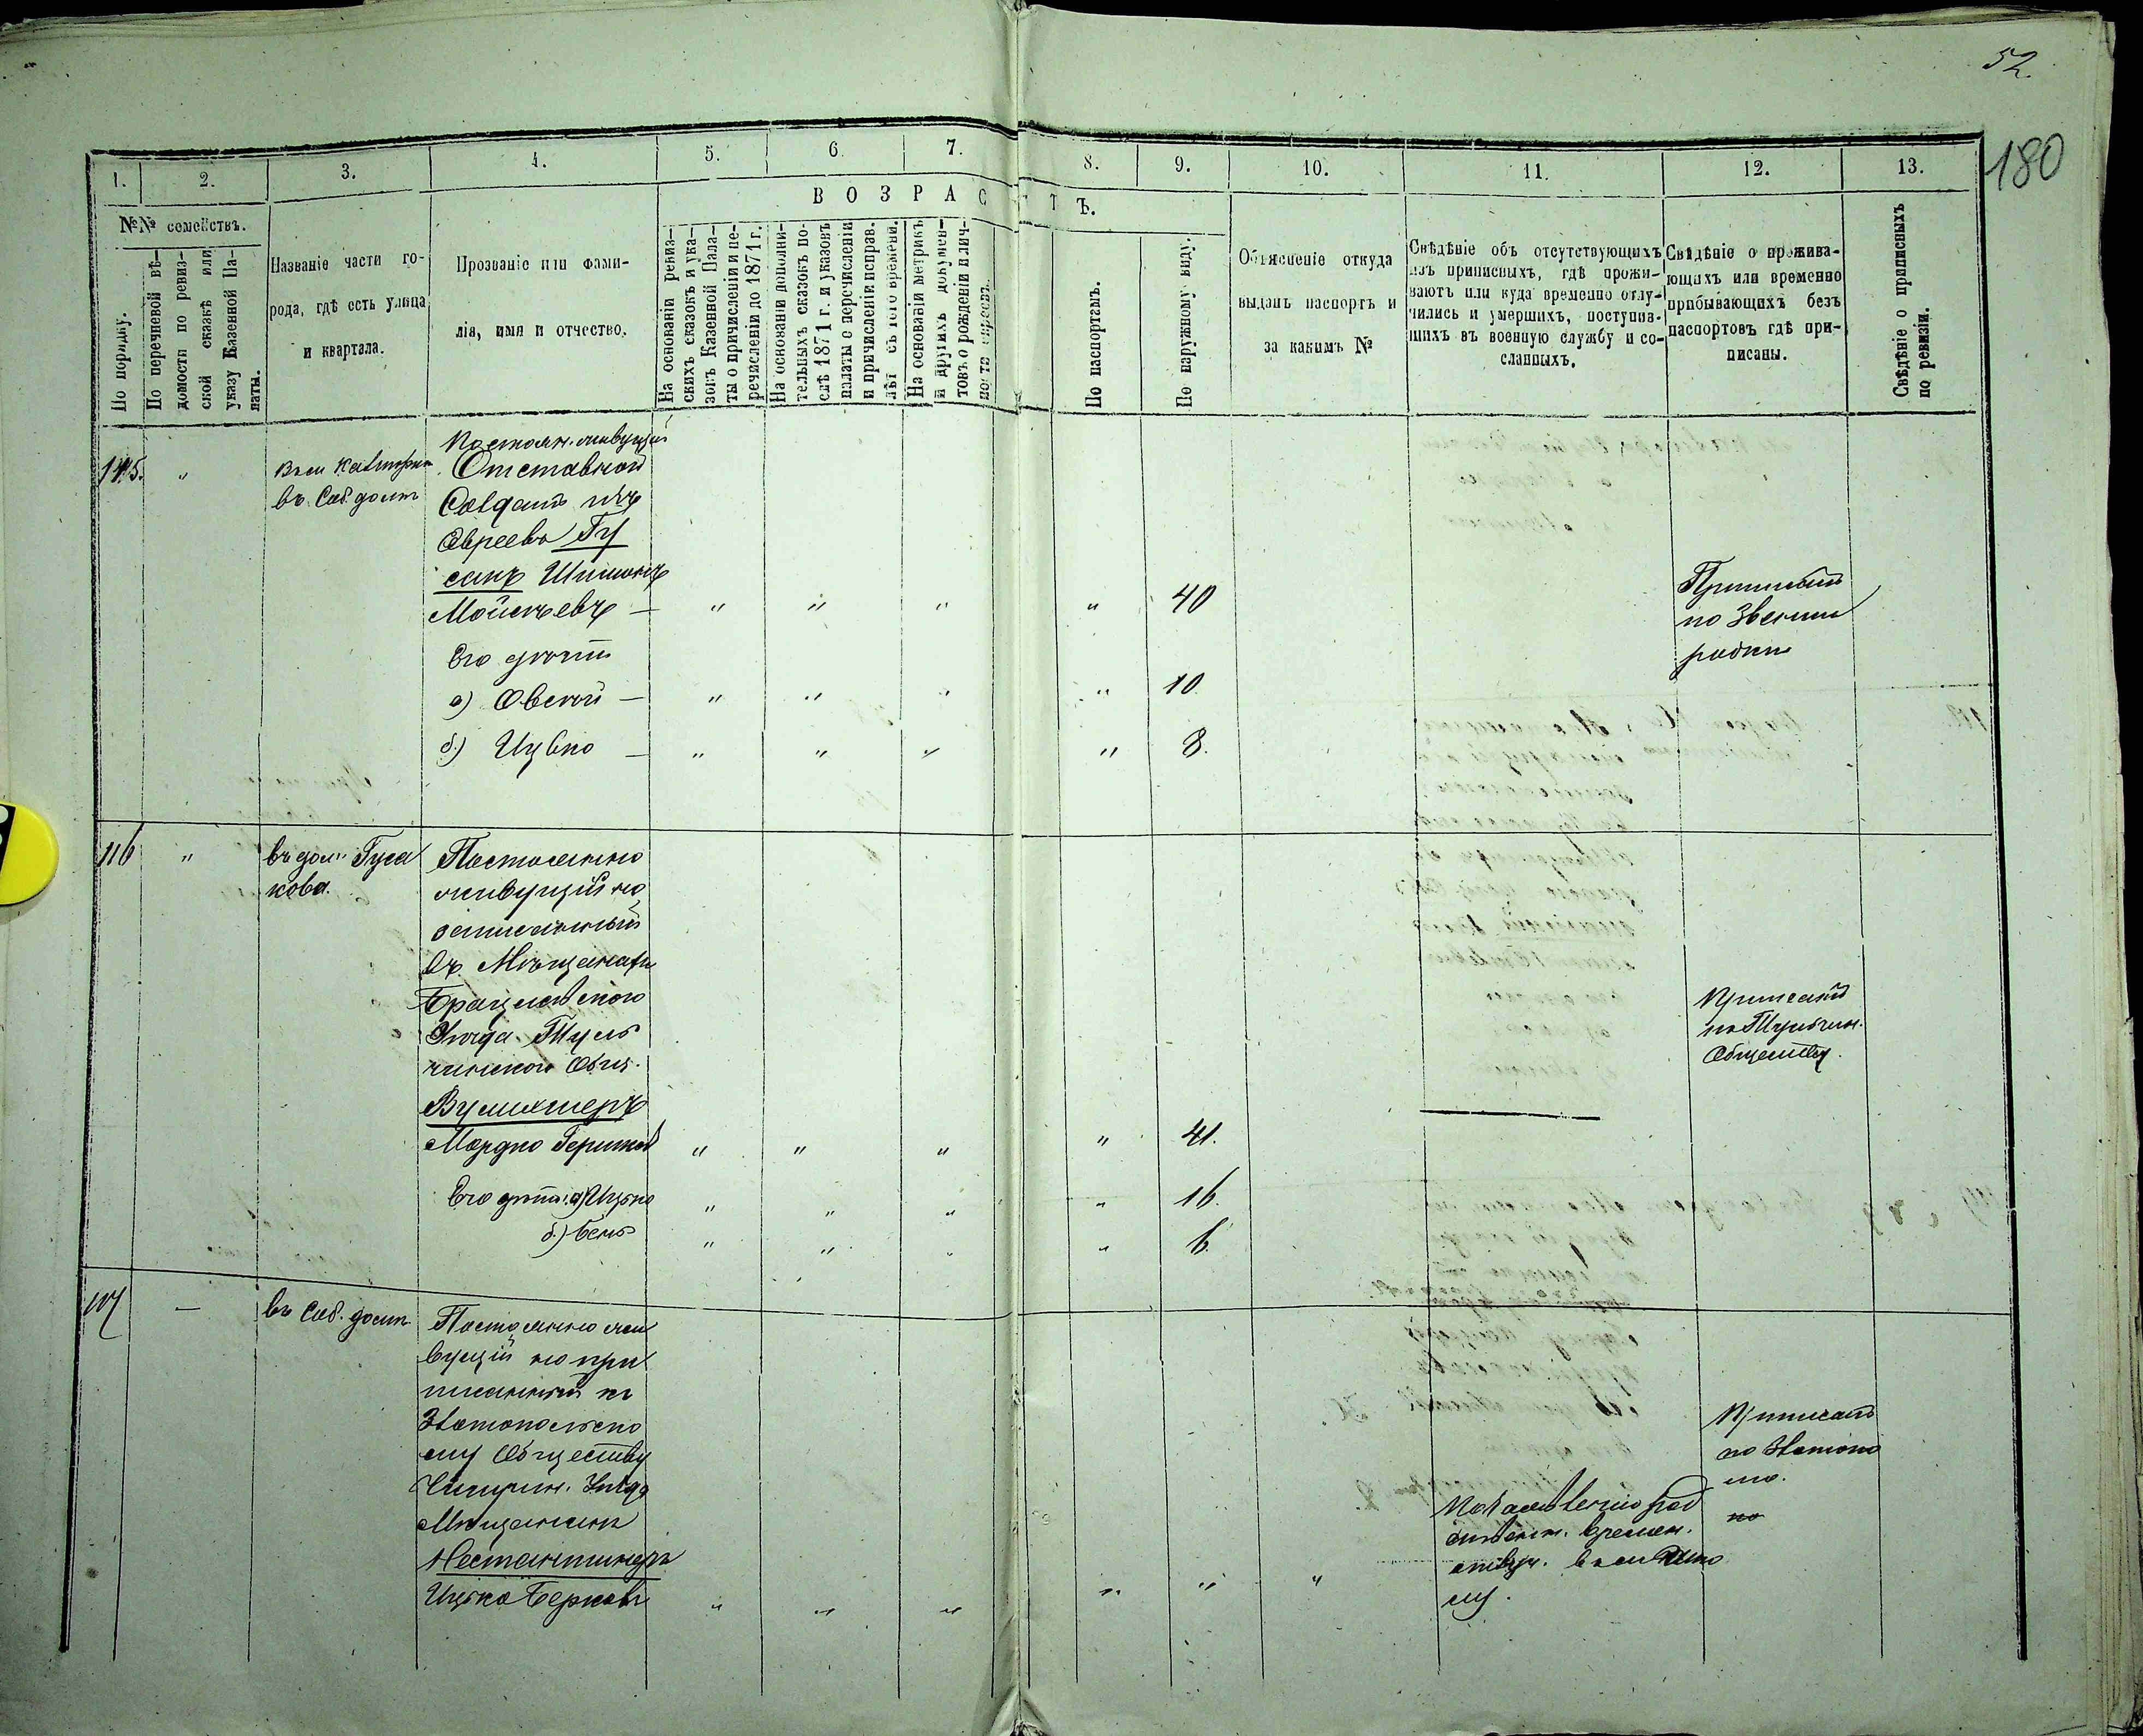 52.
180
1.
2.
3.
4.
5.
6.
7.
8.
9.
10.
11.
12.
13.
№№ семействъ.
По порядку.
По перечневой вѣ-
домости по ревиз-
ской сказкѣ или
указу Казенной Па-
латы.
Названіе части го-
рода, гдѣ есть улица
и квартала.
Прозваніе или фами-
лія, имя и отчество.
ВОЗРАСТЪ.
На основаніи ревиз-
скихъ сказокъ и ука-
зовъ Казенной Пала-
ты о причисленіи и пе-
речисленіи до 1871 г.
На основаніи дополни-
тельныхъ сказокъ по-
слѣ 1871 г. и указовъ
палаты о перечисленіи
и причисленіи исправ.
лѣт съ того времени.
На основаніи метрикъ
и другихъ докумен-
товъ о рожденіи и лич-
ности евреевъ.
По паспортамъ.
По наружному виду.
Объясненіе откуда
выданъ паспортъ и
за какимъ №
Свѣдѣніе объ отсутствующихъ
изъ приписныхъ, гдѣ прожи-
ваютъ или куда временно отлу-
чились и умершихъ, поступив-
шихъ въ военную службу и со-
сланныхъ.
Свѣдѣніе о прожива-
ющихъ или временно
прибывающихъ безъ
паспортовъ гдѣ при-
писаны.
Свѣдѣніе о приписныхъ
по ревизіи.
115. "
въ Соб. домѣ
Постоян. живущій
Отставной
Солдатъ изъ
Евреевъ Гу
санъ Шимонъ
Мойсѣевъ — " " " " 40
Приписанъ
по Звени
родки
Его дѣти
а) Овсей — " " " " 10
б) Ицько — " " " " 8.
116 "
въ дом. Гуса
кова.
Постоянно
живущій но
записанный
въ Мѣщанахъ
Брацлавскаго
Уѣзда Туль
чинскаго Общ.
Мордко Гершков " " " " 41.
Приписанъ
по Тульчин.
Обществу.
Его дѣти: а) Ицько " " " " 16.
б.) Бень " " " " 6.
117 —
въ Соб. домѣ
Постоянно жи
вущій но при
писанный къ
Златопольско
му Обществу
Чигирин. Уѣзда
Мѣщанинъ
Нестантинеръ
Ицько Берковъ " " " " " "
Приписанъ
по Златопо
лю.
по